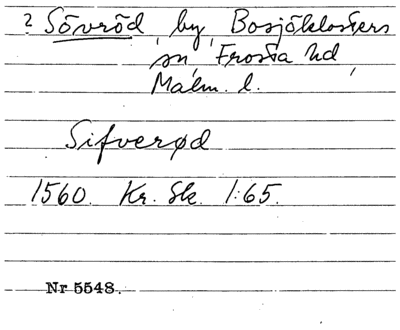 ? Sövröd, by, Bosjöklosters
sn, Frosta hd,
Malm. l.
Sifverød
1560. Kr. Sk. 1:65.
Nr 5548.